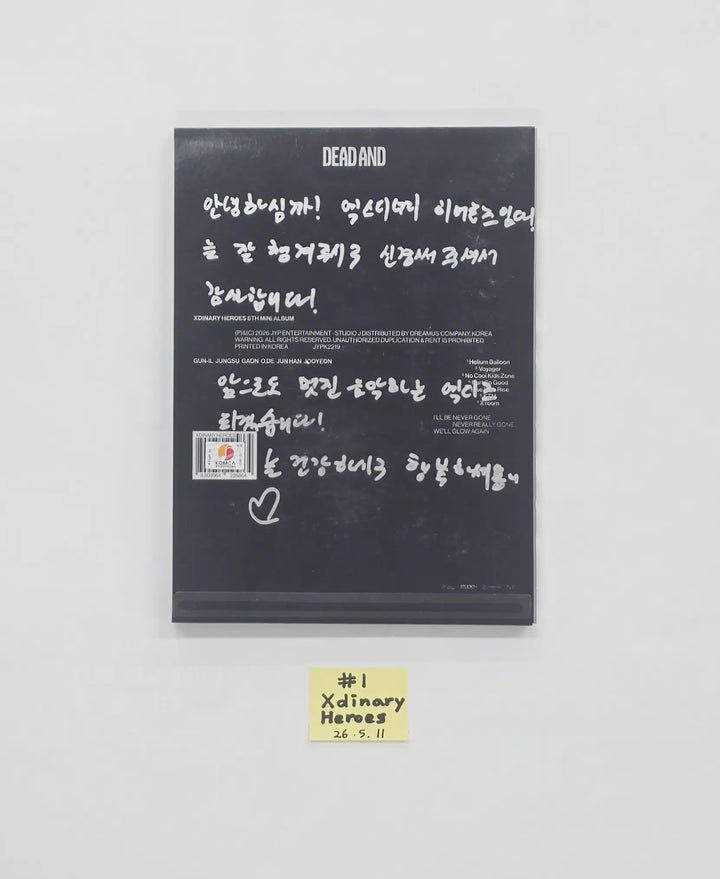 DEAD AND
안녕하심까! 엑스디너리 히어로즈임다!
늘 잘 챙겨주시구 신경써 주셔서
감사합니다!
XDINARY HEROES 8TH MINI ALBUM
(P)&(C) 2026 JYP ENTERTAINMENT · STUDIO J DISTRIBUTED BY DREAMUS COMPANY. KOREA
WARNING: ALL RIGHTS RESERVED. UNAUTHORIZED DUPLICATION & RENT IS PROHIBITED.
PRINTED IN KOREA JYPK2219
GUN-IL JUNGSU GAON O.DE JUN HAN JOOYEON
¹ Helium Balloon
² Voyager
³ No Cool Kids Zone
Good
Rise
X room
앞으로도 멋진 음악하는 엑디즈
되겠습니다!
I'LL BE NEVER GONE
NEVER REALLY GONE
WE'LL GLOW AGAIN
XDINARY HEROES
KOMCA
늘 건강하시구 행복하세용
STUDIO J
#1
Xdinary
Heroes
26.5.11